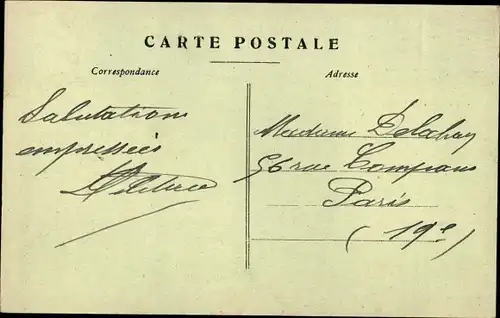 CARTE POSTALE
Correspondance
Adresse
Salutations
empressées
Madame Delahay
56 rue Compans
Paris
(19e)